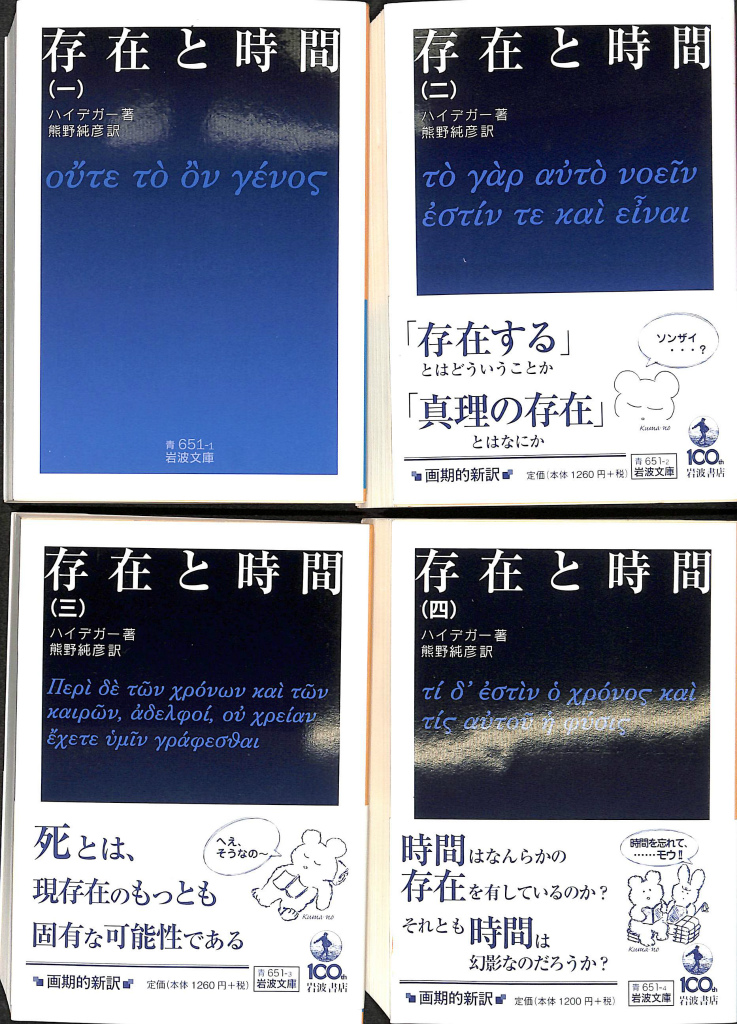 存在と時間
(一)
ハイデガー著
熊野純彦訳
οὔτε τὸ ὂν γένος
青 651-1
岩波文庫
存在と時間
(二)
ハイデガー著
熊野純彦訳
τὸ γὰρ αὐτὸ νοεῖν
ἐστίν τε καὶ εἶναι
「存在する」
とはどういうことか
「真理の存在」
とはなにか
ソンザイ
・・・?
Kuma-no
画期的新訳
定価(本体 1260円+税)
青 651-2
岩波文庫
100th
岩波書店
存在と時間
(三)
ハイデガー著
熊野純彦訳
Περὶ δὲ τῶν χρόνων καὶ τῶν
καιρῶν, ἀδελφοί, οὐ χρείαν
ἔχετε ὑμῖν γράφεσθαι
死とは、
現存在のもっとも
固有な可能性である
へえ、
そうなの〜
Kuma-no
画期的新訳
定価(本体 1260円+税)
青 651-3
岩波文庫
100th
岩波書店
存在と時間
(四)
ハイデガー著
熊野純彦訳
τί δ’ ἐστὶν ὁ χρόνος καὶ
τίς αὐτοῦ ἡ φύσις
時間はなんらかの
存在を有しているのか?
それとも時間は
幻影なのだろうか?
時間を忘れて、
……モウ!!
Kuma-no
画期的新訳
定価(本体 1200円+税)
青 651-4
岩波文庫
100th
岩波書店